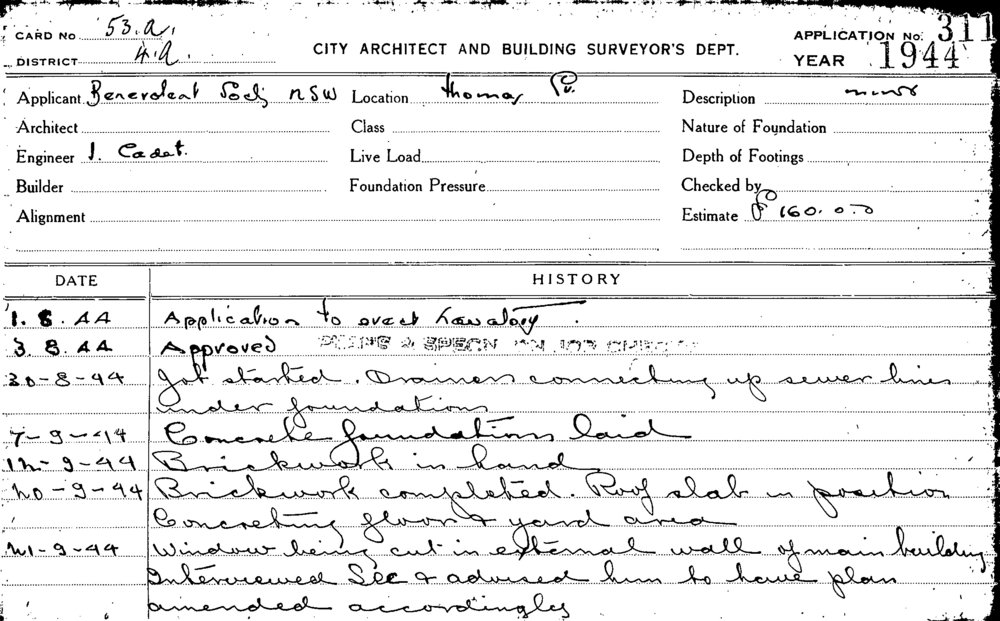 CARD No 53.a.
DISTRICT 4.a.
CITY ARCHITECT AND BUILDING SURVEYOR'S DEPT.
APPLICATION No. 311
YEAR 1944
Applicant Benevolent Socy NSW Location Thomas St. Description
Architect Class Nature of Foundation
Engineer J. Cadet. Live Load Depth of Footings
Builder Foundation Pressure Checked by
Alignment Estimate £160.0.0
DATE HISTORY
1.8.44 Application to erect Lavatory.
3.8.44 Approved PLANS & SPECN ON JOB
30-8-44 Job started. Drainers connecting up sewer lines
under foundations
7-9-44 Concrete foundations laid
12-9-44 Brickwork in hand
20-9-44 Brickwork completed. Roof slab in position
Concreting floor & yard area
21-9-44 Window being cut in external wall of main building
Interviewed Sec & advised him to have plan
amended accordingly